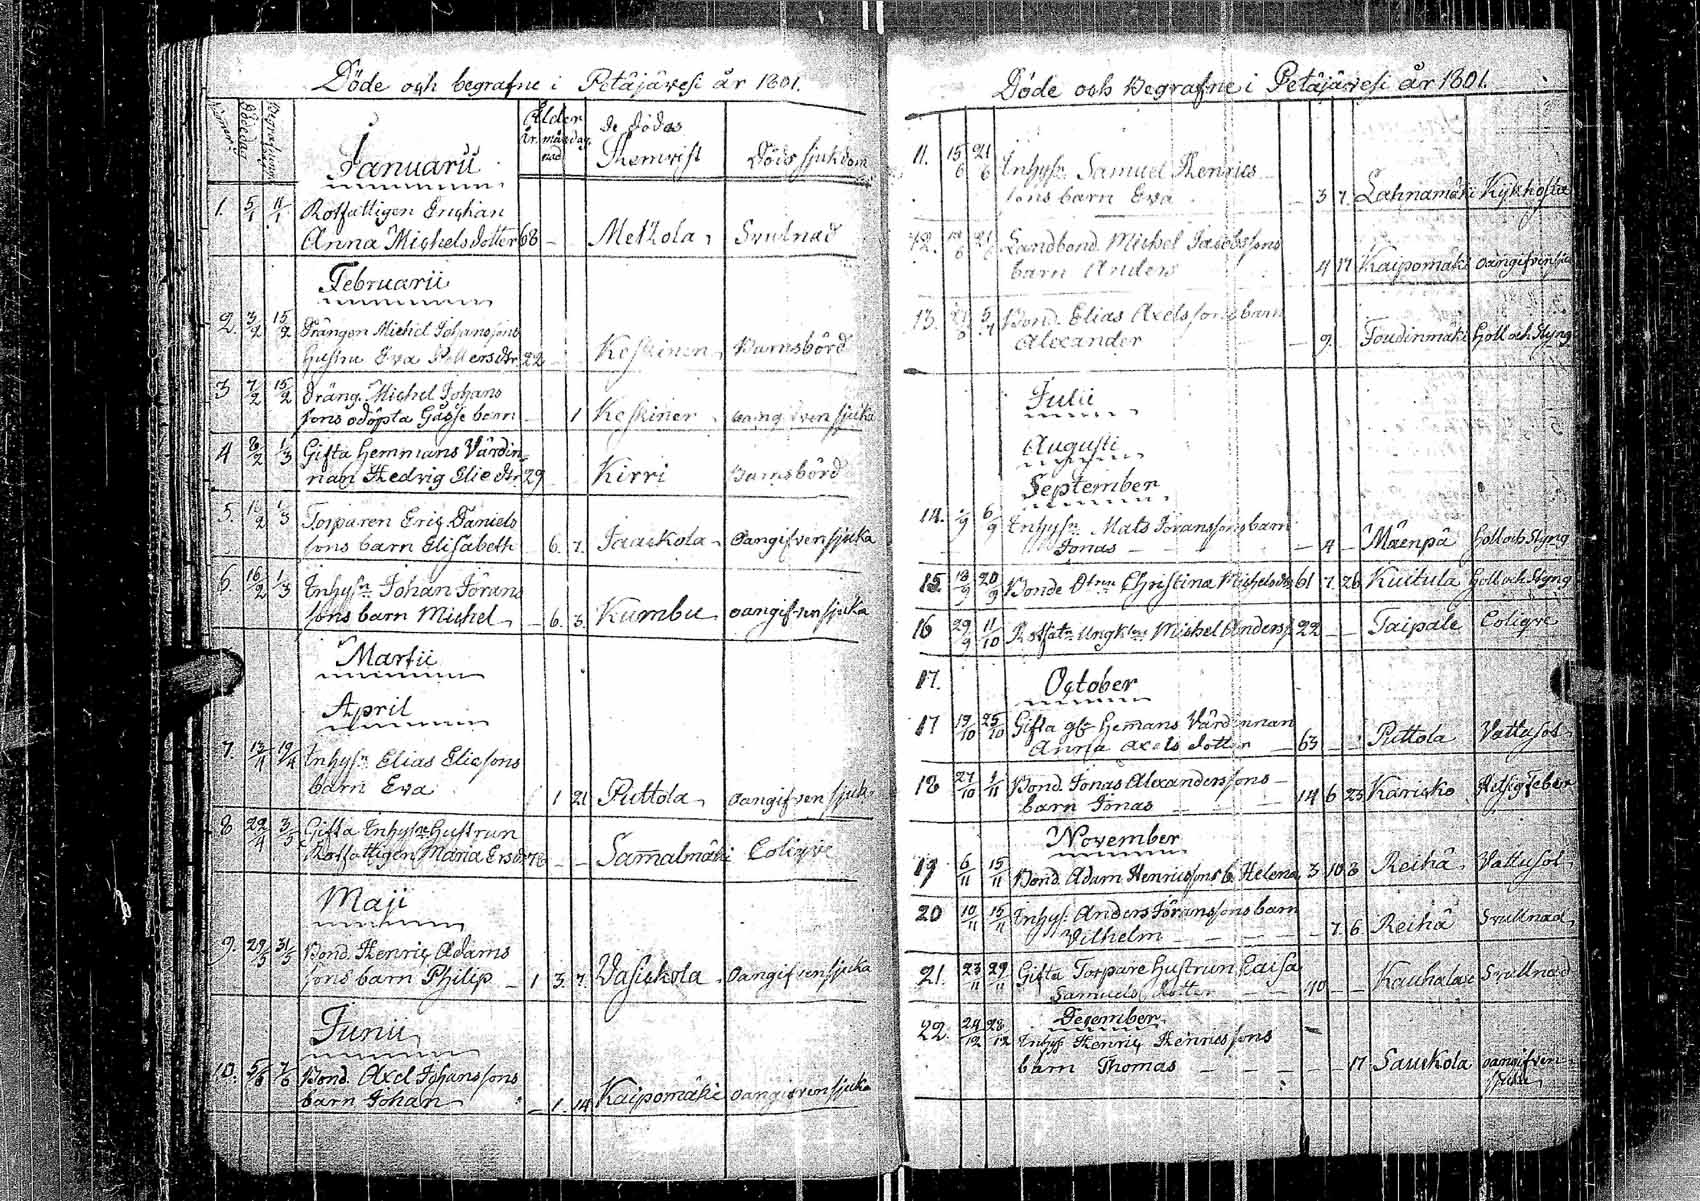 Döde och begrafne i Petäjävesi år 1801.
Numer Dödedag Begrafningsd. Ålder de Dödas
År. månad dag. Hemvist Dödssjukdom
Januarii
1. 5/1 11/1 Rotfattigen Enghan
Anna Michelsdotter 68 - - Metzola Svulnad
Februarii
2. 3/2 15/2 Drängen Michel Johanssons
hustru Eva Pettersdtr 22 - - Keskinen Barnsbörd
3 7/2 15/2 Dräng. Michel Johans
sons odöpta Gosse barn - - 1 Keskinen oangifven sjuka
4 8/2 1/3 Gifta Hemmans Värdin
nan Hedvig Elie dtr 29 - Kirri Barnsbörd
5. /2 1/3 Torparen Eric Daniels
sons barn Elisabeth - 6. 7. Jaaskola Oangifven sjuka
6. 16/2 1/3 Inhysn Johan Jörans
sons barn Michel - 6. 3. Kumbu oangifven sjuka
Martii
April
7. 13/4 19/4 Inhysn Elias Eliesons
barn Eva 1 21 Puttola oangifven sjuk
8 22/4 3/5 Gifta Inhyses Hustrun
Rotfattigen Maria Ersdr - - Sammalmäki Coliqve
Maji
9. 29/5 31/5 Bond. Henric Adams
sons barn Philip - 1 3. 7. Vasickola oangifven sjuka
Junii
10. 5/6 7/6 Bond. Axel Johanssons
barn Johan - 1 14 Kaipomäki oangifven sjuka
Döde och Begrafne i Petäjävesi år 1801.
11. 15/6 21/6 Inhysn Samuel Henrics
sons barn Eva - 3 7. Lahnamäki Kykhosta
12. 21/6 Landbond. Michel Jacobssons
barn Anders - 4 17 Kaipomäki oangifven sju
13. 21/6 5/7 Bond. Elias Axelssons barn
Alexander - 9. Toudinmäki Håll och Styng
Julii
Augusti
September
14. /9 6/9 Inhysn Mats Jöranssons barn
Jonas - - 4 - Mäenpä Håll och Styng
15. 18/9 20/9 Bonde Christina Michelsdtr 61 7. 26 Kuitula Håll och Styng
16 29/9 11/10 Rotfatn Ungkl Michel Anders 22 - - Taipale Coliqve
17. October
17 19/10 25/10 Gifta gl Hemmans Värdinnan
Anna Axels dotter - 63 - - Puttola Vattusot
18 27/10 1/11 Bond. Jonas Alexanderssons
barn Jonas - - 14 6 23 Karisko Hetsig feber
November
19 6/11 15/11 Bond. Adam Henricssons b. Helena 3 10 3 Reihä Vattusot
20 10/11 15/11 Inhys. Anders Jöranssons barn
Vilhelm - - - 7. 6 Reihä Svullnad
21. 23/11 29/11 Gifta Torpare hustrun Caisa
Samuels dotter - 40 - - Kauhalase Svullnad
December
22. 24/12 28/12 Inhys Henric Henricssons
barn Thomas - - - - - 17 Sauckola oangifven
sjuka